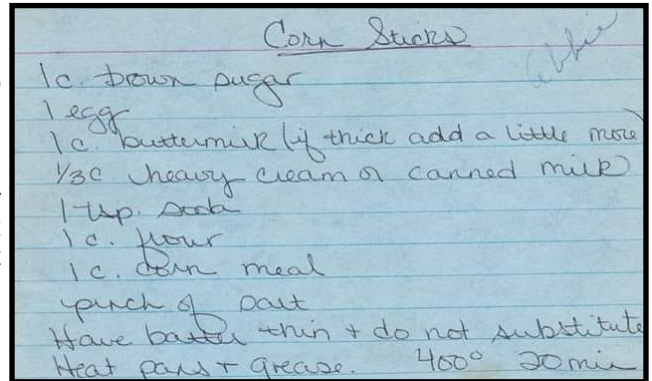 Corn Sticks
Abbie
1 c. brown sugar
1 egg
1 c. buttermilk (if thick add a little more)
1/3 c heavy cream or canned milk
1 tsp. soda
1 c. flour
1 c. corn meal
pinch of salt
Have batter thin + do not substitute
Heat pans + grease. 400° 20 min